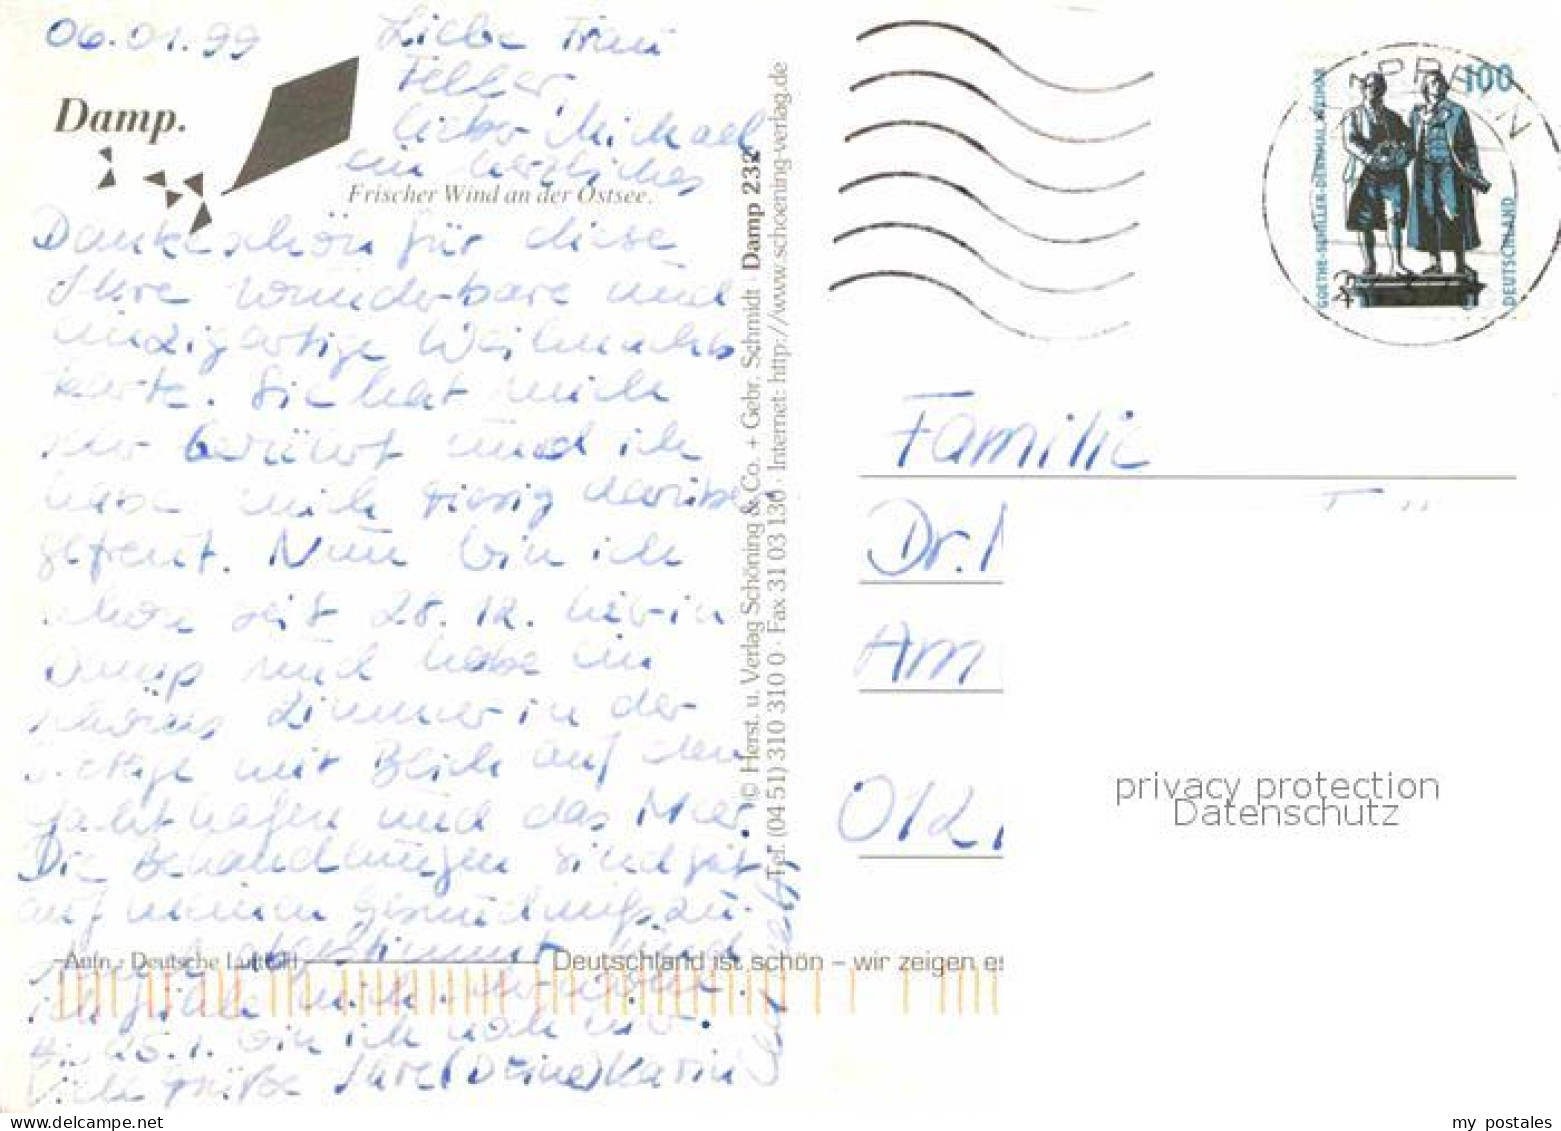 06.01.99
Liebe Frau
Feller
lieber Michael
ein herzliches
Damp.
Frischer Wind an der Ostsee.
Dankeschön für diese
Ihre wunderbare und
einzigartige Weihnachts
karte. Sie hat mich
sehr berührt und ich
habe mich riesig darüber
gefreut. Nun bin ich
schon seit 28.12. hier in
Damp und habe ein
schönes Zimmer in der
mit Blick auf den
Yachthafen und das Meer.
Die Behandlungen sind gut
auf meinen Gesundheitszu-
abgestimmt und
ich fühle mich
25.1. bin ich noch hier.
Viele Grüße Ihre (Deine) Karin
Aufn.: Deutsche Luftbild
Deutschland ist schön – wir zeigen es
© Herst. u. Verlag Schöning & Co. + Gebr. Schmidt · Damp 232
Tel. (04 51) 310 310 0 · Fax 31 03 130 · Internet: http://www.schoening-verlag.de
100
GOETHE-SCHILLER-DENKMAL WEIMAR
DEUTSCHLAND
Familie
Dr.
Am
012
privacy protection
Datenschutz
my postales